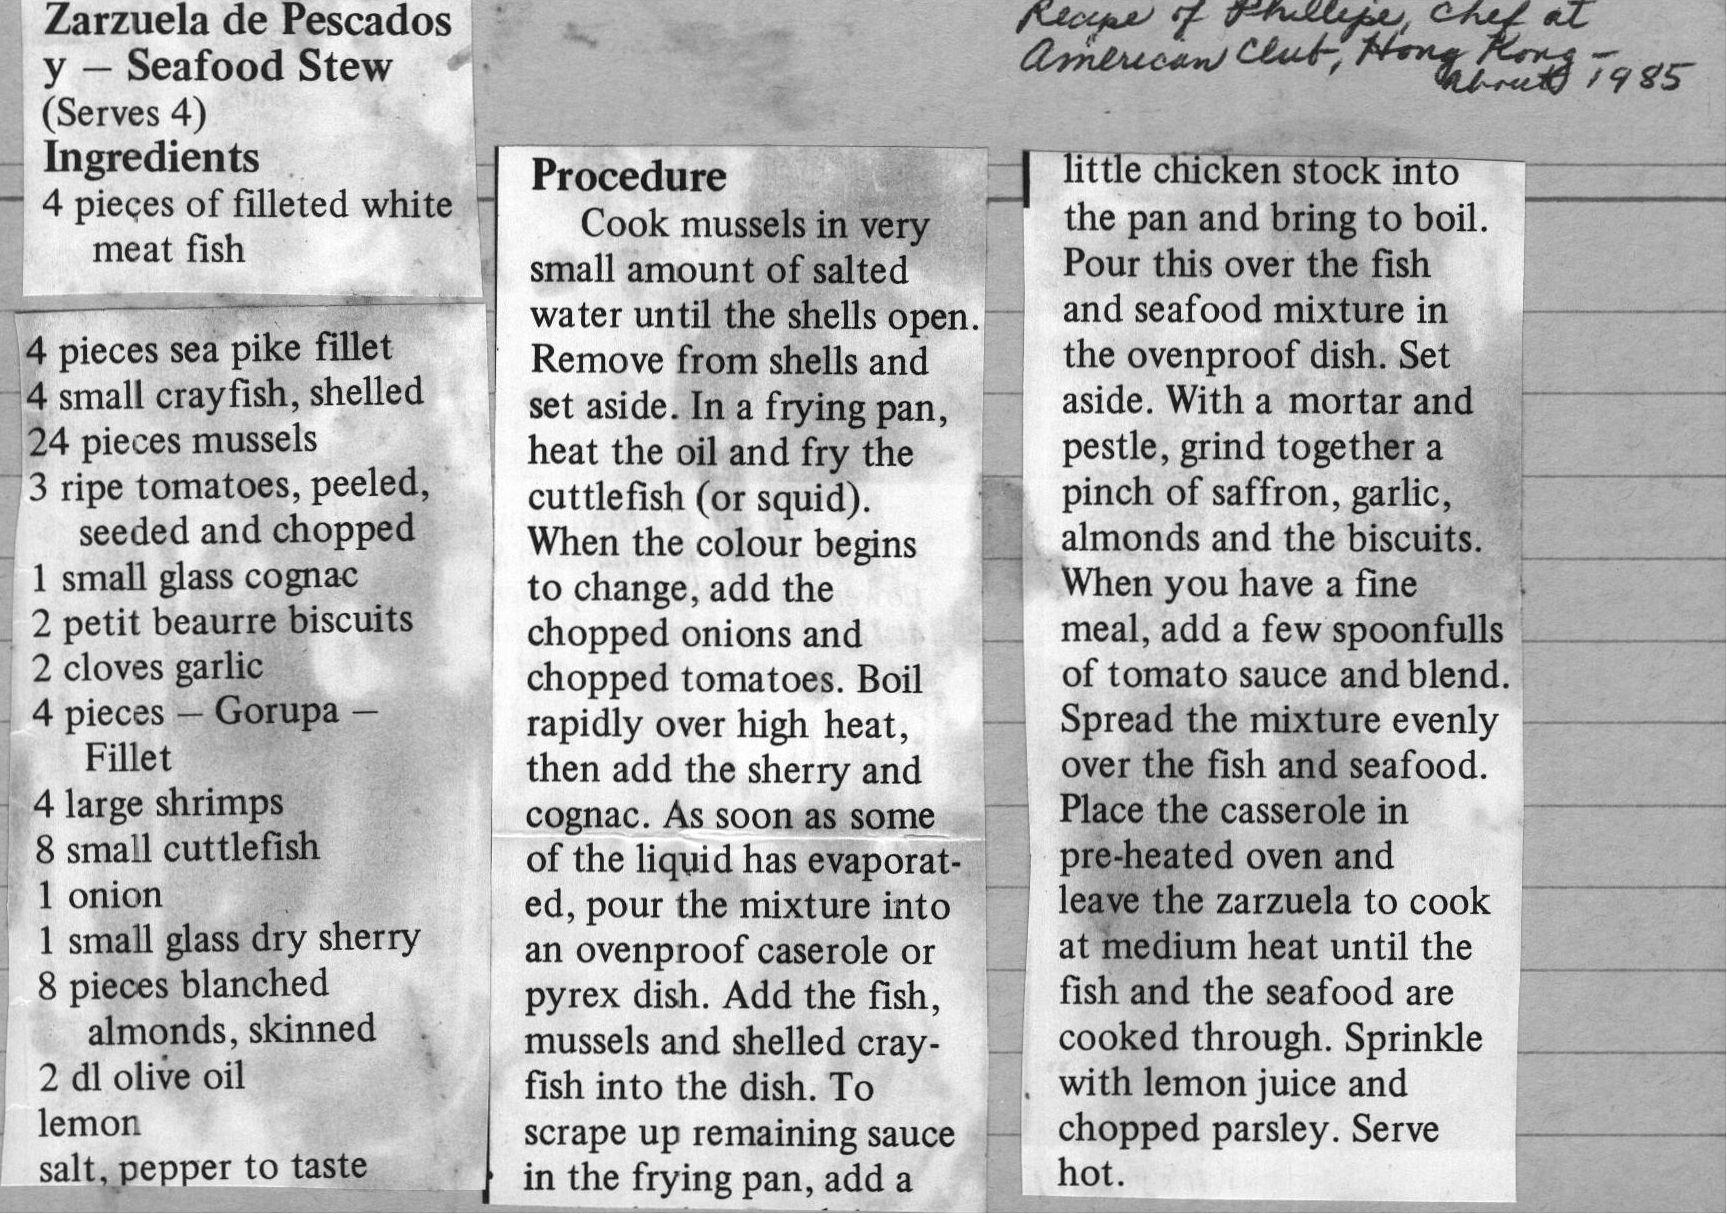 Zarzuela de Pescados
y — Seafood Stew
(Serves 4)
Ingredients
4 pieces of filleted white
meat fish
4 pieces sea pike fillet
4 small crayfish, shelled
24 pieces mussels
3 ripe tomatoes, peeled,
seeded and chopped
1 small glass cognac
2 petit beaurre biscuits
2 cloves garlic
4 pieces — Gorupa —
Fillet
4 large shrimps
8 small cuttlefish
1 onion
1 small glass dry sherry
8 pieces blanched
almonds, skinned
2 dl olive oil
lemon
salt, pepper to taste
Recipe of Phillipe, chef at
American Club, Hong Kong —
about 1985
Procedure
Cook mussels in very
small amount of salted
water until the shells open.
Remove from shells and
set aside. In a frying pan,
heat the oil and fry the
cuttlefish (or squid).
When the colour begins
to change, add the
chopped onions and
chopped tomatoes. Boil
rapidly over high heat,
then add the sherry and
cognac. As soon as some
of the liquid has evaporat-
ed, pour the mixture into
an ovenproof caserole or
pyrex dish. Add the fish,
mussels and shelled cray-
fish into the dish. To
scrape up remaining sauce
in the frying pan, add a
little chicken stock into
the pan and bring to boil.
Pour this over the fish
and seafood mixture in
the ovenproof dish. Set
aside. With a mortar and
pestle, grind together a
pinch of saffron, garlic,
almonds and the biscuits.
When you have a fine
meal, add a few spoonfulls
of tomato sauce and blend.
Spread the mixture evenly
over the fish and seafood.
Place the casserole in
pre-heated oven and
leave the zarzuela to cook
at medium heat until the
fish and the seafood are
cooked through. Sprinkle
with lemon juice and
chopped parsley. Serve
hot.